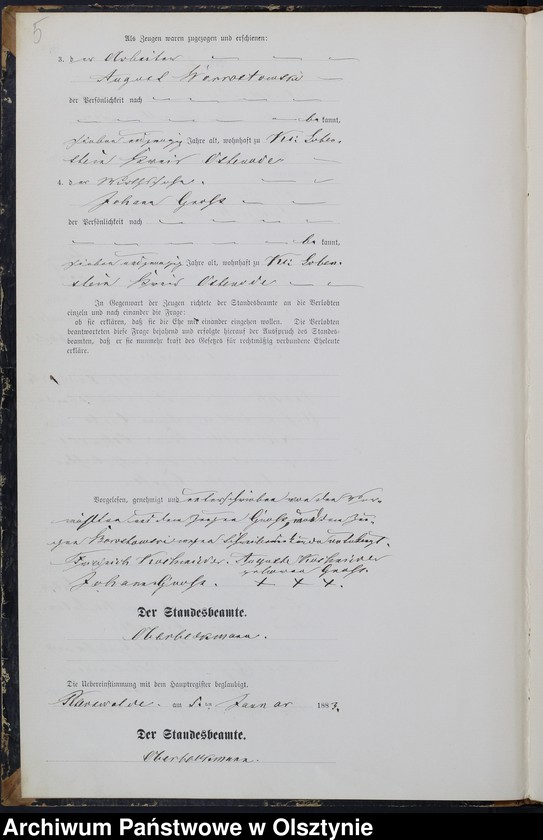 5
Als Zeugen waren zugezogen und erschienen:
3. der Arbeiter
August
der Persönlichkeit nach
be kannt,
sieben und zwanzig Jahre alt, wohnhaft zu Kl: Loben-
stein Kreis Osterode
4. der Wirthssohn
Johann Groß
der Persönlichkeit nach
be kannt,
sieben und zwanzig Jahre alt, wohnhaft zu Kl: Loben-
stein Kreis Osterode
In Gegenwart der Zeugen richtete der Standesbeamte an die Verlobten
einzeln und nach einander die Frage:
ob sie erklären, daß sie die Ehe mit einander eingehen wollen. Die Verlobten
beantworteten diese Frage bejahend und erfolgte hierauf der Ausspruch des Standes-
beamten, daß er sie nunmehr kraft des Gesetzes für rechtmäßig verbundene Eheleute
erkläre.
Vorgelesen, genehmigt und unterschrieben von den Ver-
mählten und dem Zeugen Groß, und dem Zeu-
gen wegen Schreibensunkunde unterkreuzt.
Friedrich Auguste
geborene Groß.
Johann Groß. + + +.
Der Standesbeamte.
Oberbeckmann.
Die Uebereinstimmung mit dem Hauptregister beglaubigt.
am 5. ten Januar 1883.
Der Standesbeamte.
Oberbeckmann.
Archiwum Państwowe w Olsztynie